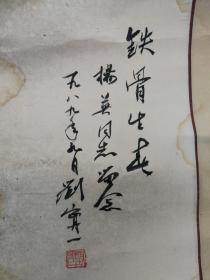 铁骨生春
杨英同志留念
一九八九年九月刘宁一